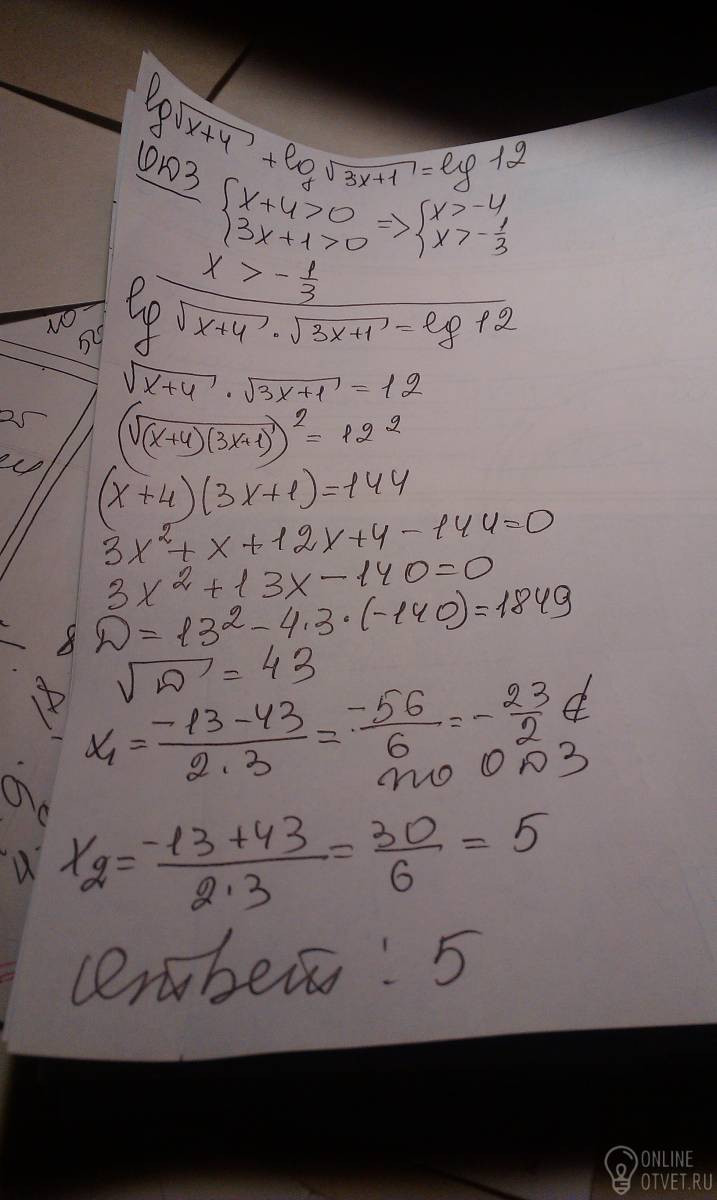 lg√(x+4) + log √(3x+1) = lg 12
ОДЗ {x+4>0 => {x>-4
{3x+1>0 {x>-1/3
x > -1/3
lg √(x+4) · √(3x+1) = lg 12
√(x+4) · √(3x+1) = 12
(√((x+4)(3x+1)))² = 12²
(x+4)(3x+1)=144
3x²+x+12x+4-144=0
3x²+13x-140=0
D=13²-4·3·(-140)=1849
√D = 43
x₁ = (-13-43)/(2·3) = -56/6 = -23/2 ∉
по ОДЗ
x₂ = (-13+43)/(2·3) = 30/6 = 5
Ответ: 5
18
8
ONLINE
OTVET.RU